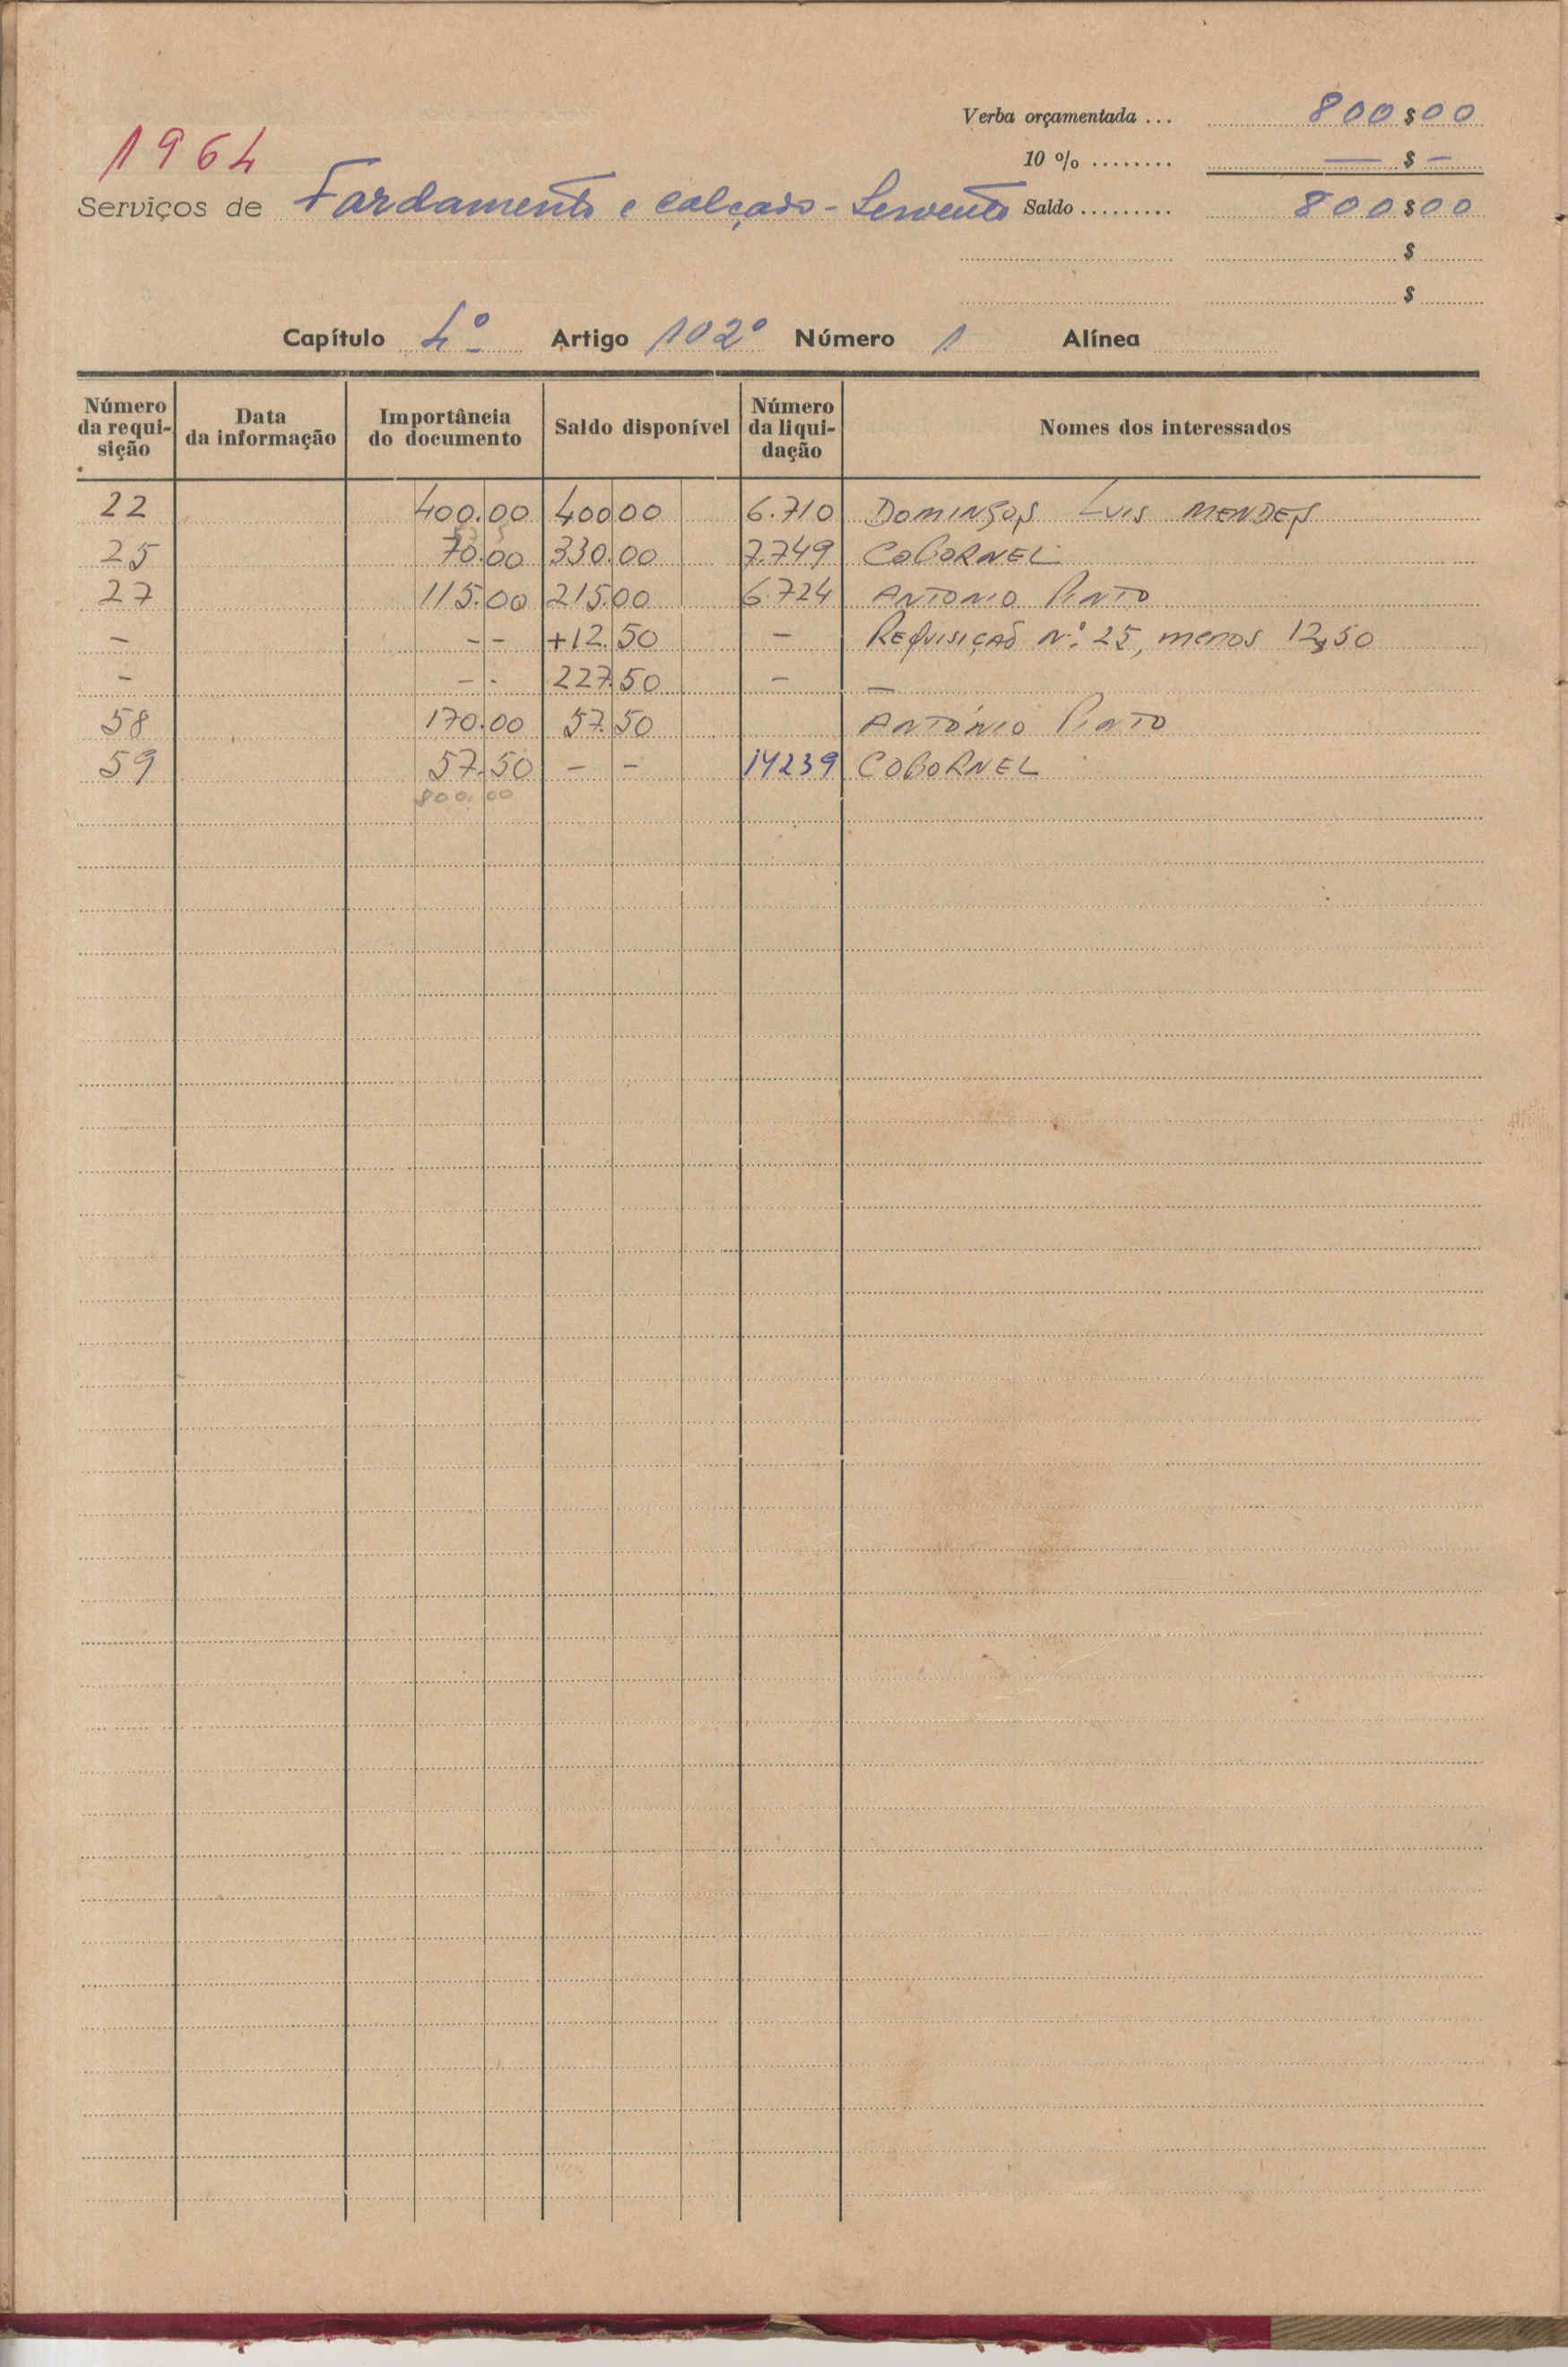 Verba orçamentada ... 800$00
1964
10 % ........ — $ —
Serviços de Fardamento e calçado - Servente Saldo ......... 800$00
$
$
Capítulo 4º Artigo 102º Número 1 Alínea
Número da requi-sição Data da informação Importância do documento Saldo disponível Número da liqui-dação Nomes dos interessados
22 400.00 400.00 6.710 DOMINGOS LUIS MENDES
25 70.00 330.00 7.749 COBORNEL
27 115.00 215.00 6.724 ANTONIO PINTO
— - - +12.50 — REQUISIÇÃO Nº 25, menos 12$50
— - - 227.50 — —
58 170.00 57.50 ANTÓNIO PINTO
59 57.50 — — 14239 COBORNEL
800.00